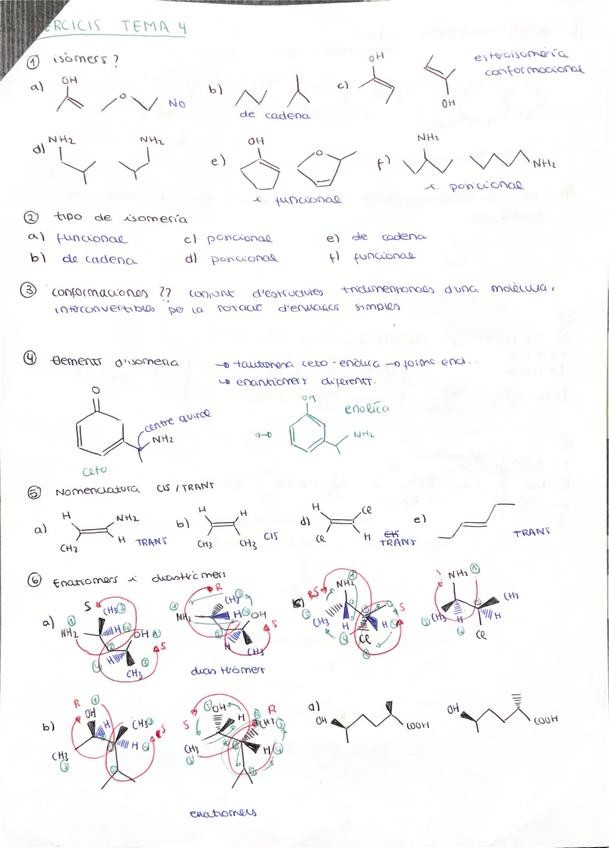 ERCICIS TEMA 4
① isòmers?
a) OH NO
b) de cadena
c) OH OH esteroisomería conformacional
d) NH2 NH2
e) OH O i. funcional
f) NH2 NH2 i. posicional
② tipo de isomería
a) funcional c) posicional e) de cadena
b) de cadena d) posicional f) funcional
③ conformaciones ?? conjunt d'estructures tridimensionals d'una molècula,
interconvertibles per la rotació d'enllaços simples
④ Elements d'isomeria → tautomeria ceto-enòlica → forma enol..
↳ enantiomers diferents.
O centre quiral NH2 ceto
OH enolica NH2
⑤ Nomenclatura CIS/TRANS
a) H NH2 CH3 H TRANS
b) H H CH3 CH3 CIS
d) H Cl Cl H TRANS
e) TRANS
⑥ Enatiomers i diastriomers
a) S NH2 CH3 H OH H CH3 S
R NH2 CH3 H OH H CH3 S
diastriomer
c) NH2 CH3 H Cl S
NH2 CH3 H CH3 H Cl
b) R OH H CH3 CH3 H S
S OH H CH3 R CH3 H
enatiomers
d) OH COOH OH COOH